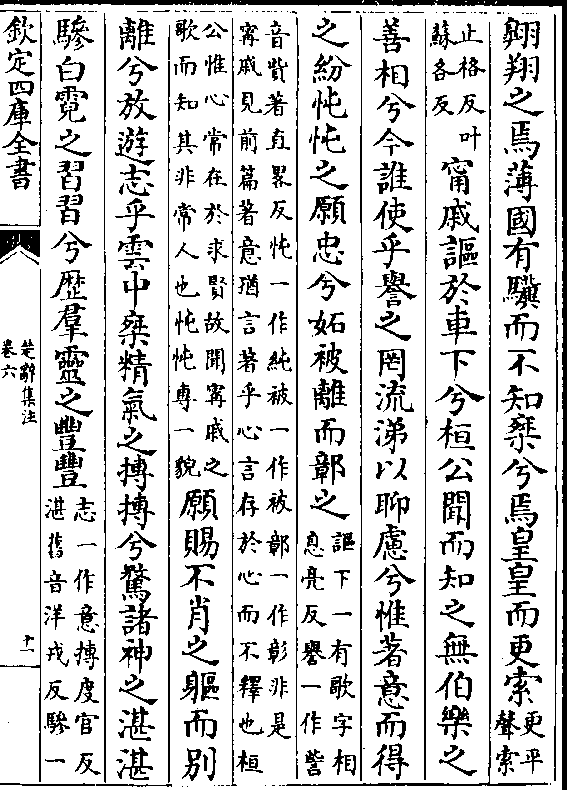 翺翔之焉薄國有驥而不知椉兮焉皇皇而更索更平
聲索
止格反叶
蘇各反
甯戚謳於車下兮桓公聞而知之無伯樂之
善相兮今誰使乎譽之罔流涕以聊慮兮惟著意而得
之紛忳忳之願忠兮妬被離而鄣之
謳下一有歌字相
息亮反譽一作訾
音貲著直畧反忳一作純被一作被鄣一作彰非是
甯戚見前篇著意猶言著乎心言存於心而不釋也桓
公惟心常在於求賢故聞甯戚之
歌而知其非常人也忳忳專一貌
願賜不肖之軀而別
離兮放遊志乎雲中椉精氣之摶摶兮騖諸神之湛湛
驂白霓之習習兮歴羣靈之豐豐
志一作意摶度官反
湛舊音洋戎反驂一
欽定四庫全書
楚辭集注
卷六
十一